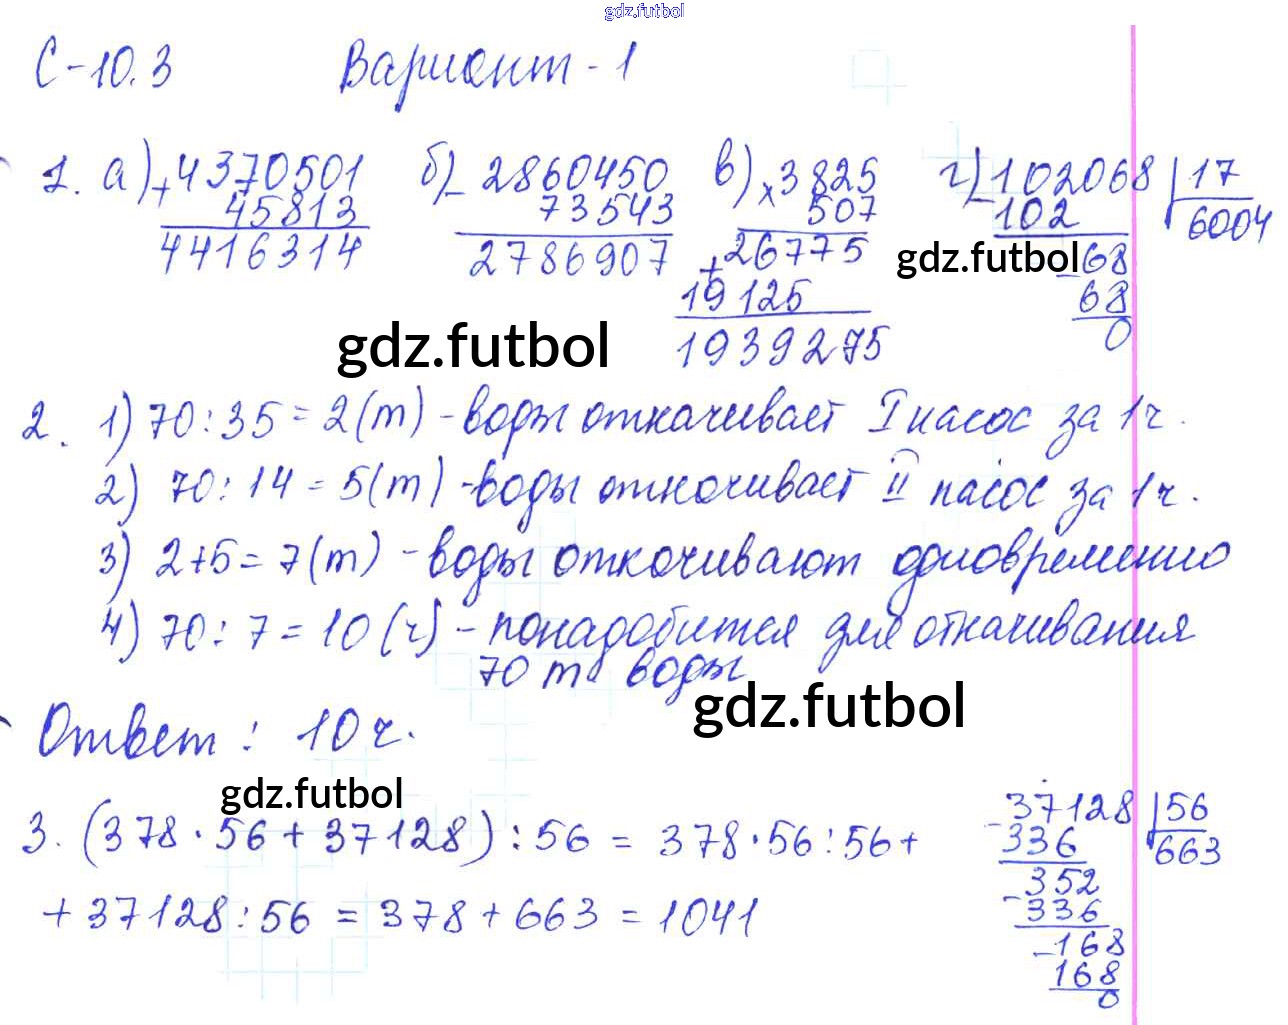 gdz.futbol
С-10.3 Вариант-1
1. а) + 4370501 б) - 2860450 в) × 3825 г) - 102068 | 17
45813 73543 507 102 6004
4416314 2786907 + 26775 gdz.futbol - 68
19125 68
gdz.futbol 1939275 0
2. 1) 70 : 35 = 2 (т) - воды откачивает I насос за 1 ч.
2) 70 : 14 = 5 (т) - воды откачивает II насос за 1 ч.
3) 2 + 5 = 7 (т) - воды откачивают одновременно
4) 70 : 7 = 10 (ч) - понадобится для откачивания
70 т воды
gdz.futbol
Ответ: 10 ч.
gdz.futbol
3. (378 · 56 + 37128) : 56 = 378 · 56 : 56 +
+ 37128 : 56 = 378 + 663 = 1041
- 37128 | 56
336 663
- 352
336
- 168
168
0